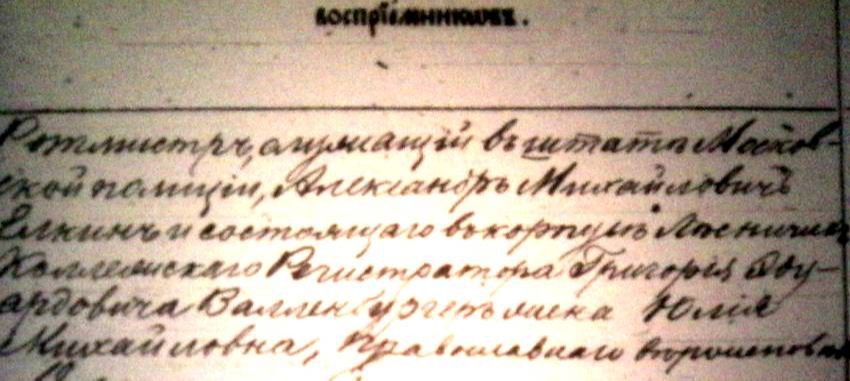 воспріемниковъ.
Ротмистръ, служащій въ штатѣ Москов-
ской полиціи, Александръ Михайловичъ
Елкинъ и состоящаго въ корпусѣ Лѣсничихъ
Коллежскаго Регистратора Григорія Эду-
ардовича Валленбургеръ жена Юлія
Михайловна, Православнаго